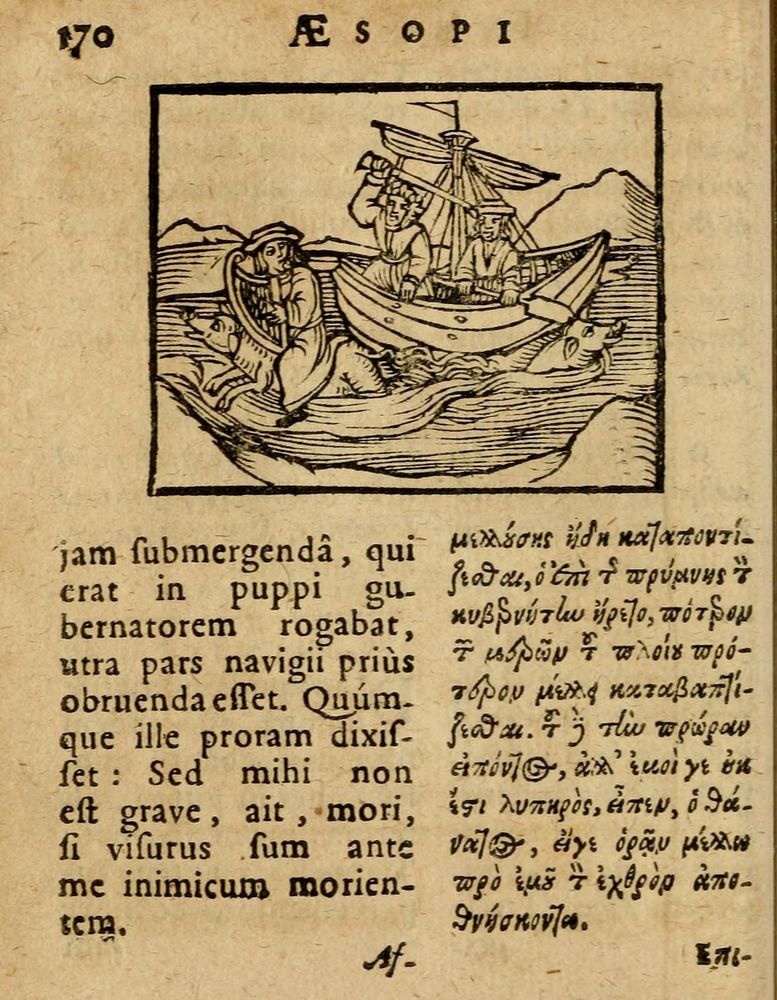 170 ÆSOPI
jam ſubmergendâ, qui
erat in puppi gu-
bernatorem rogabat,
utra pars navigii priùs
obruenda eſſet. Quúm-
que ille proram dixiſ-
ſet: Sed mihi non
eſt grave, ait, mori,
ſi viſurus ſum ante
me inimicum morien-
tem.
Aſ-
μελλούσης ἤδη καταποντί-
ζεσθαι, ὁ ἐπὶ τῆς πρύμνης τὸν
κυβερνήτην ἤρετο, πότερον
τῶν μερῶν τοῦ πλοίου πρό-
τερον μέλλει καταβαπτί-
ζεσθαι. τοῦ δὲ τὴν πρώραν
εἰπόντος, ἀλλ' ἐμοί γε οὐκ
ἔστι λυπηρὸς, εἶπεν, ὁ θά-
νατος, εἴγε ὁρᾷν μέλλω
πρὸ ἐμοῦ τὸν ἐχθρὸν ἀπο-
θνήσκοντα.
Ἐπι-